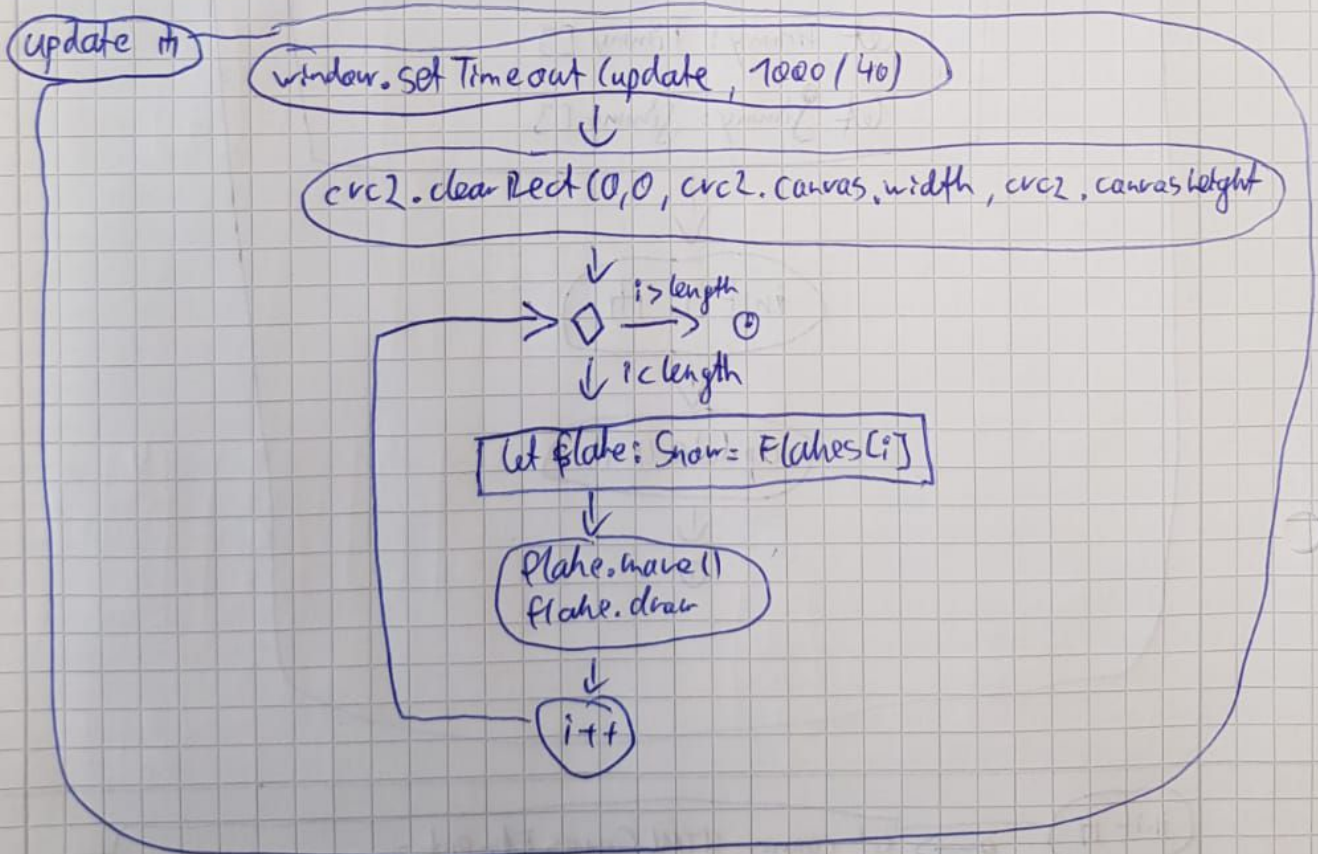 update
window.setTimeout (update, 1000/40)
crc2.clearRect (0,0, crc2.canvas.width, crc2.canvas height
i>length
i<length
let flake: Snow = Flakes[i]
flake.move()
flake.draw
i++